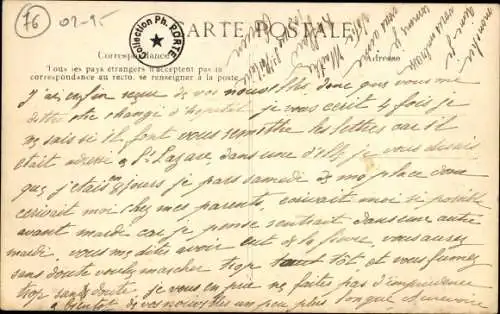 76
02-95
Collection Ph. PORTE
CARTE POSTALE
Correspondance
Adresse
Tous les pays étrangers n'acceptent pas la
correspondance au recto, se renseigner à la poste
J'ai enfin reçue de vos nouvelles donc que vous me
dites être changé d'hopital je vous ecrit 4 fois je
ne sais si il font vous remettre les lettres car il
etait adressé a St Lazare dans une d'elle je vous disais
que j'etais 8 jours je pars samedi ma place donc
ecrivait moi chez mes parents, ecrivait moi si posible
avant mardi car je pense rentrait dans une autre
mardi, vous me dites avoir eut de la fievre, vous aurez
sans doute voulez marcher trop tôt et vous fumez
trop sans doute, je vous en prie ne faites pas d'imprudence
a bientot de vos nouvelles un peu plus longue, Aurevoire